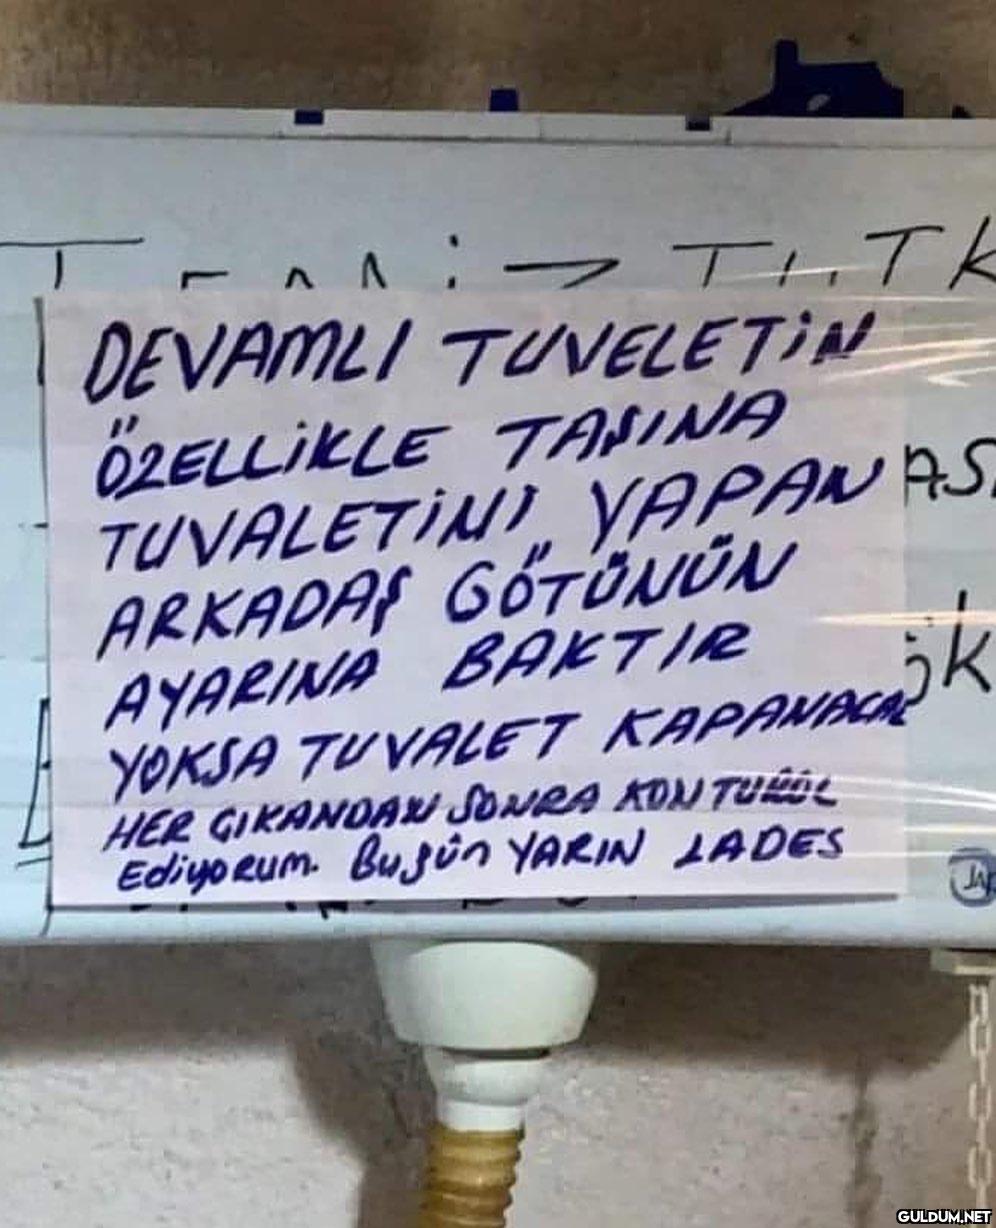 TEMİZ TUTK
DEVAMLI TUVELETİN
ÖZELLİKLE TAŞINA
TUVALETİNİ YAPAN
ARKADAŞ GÖTÜNÜN
AYARINA BAKTIR
YOKSA TUVALET KAPANACAK
HER ÇIKANDAN SONRA KONTUROL
EDiYORUM. BugÜn YARIN LADES
GULDUM.NET